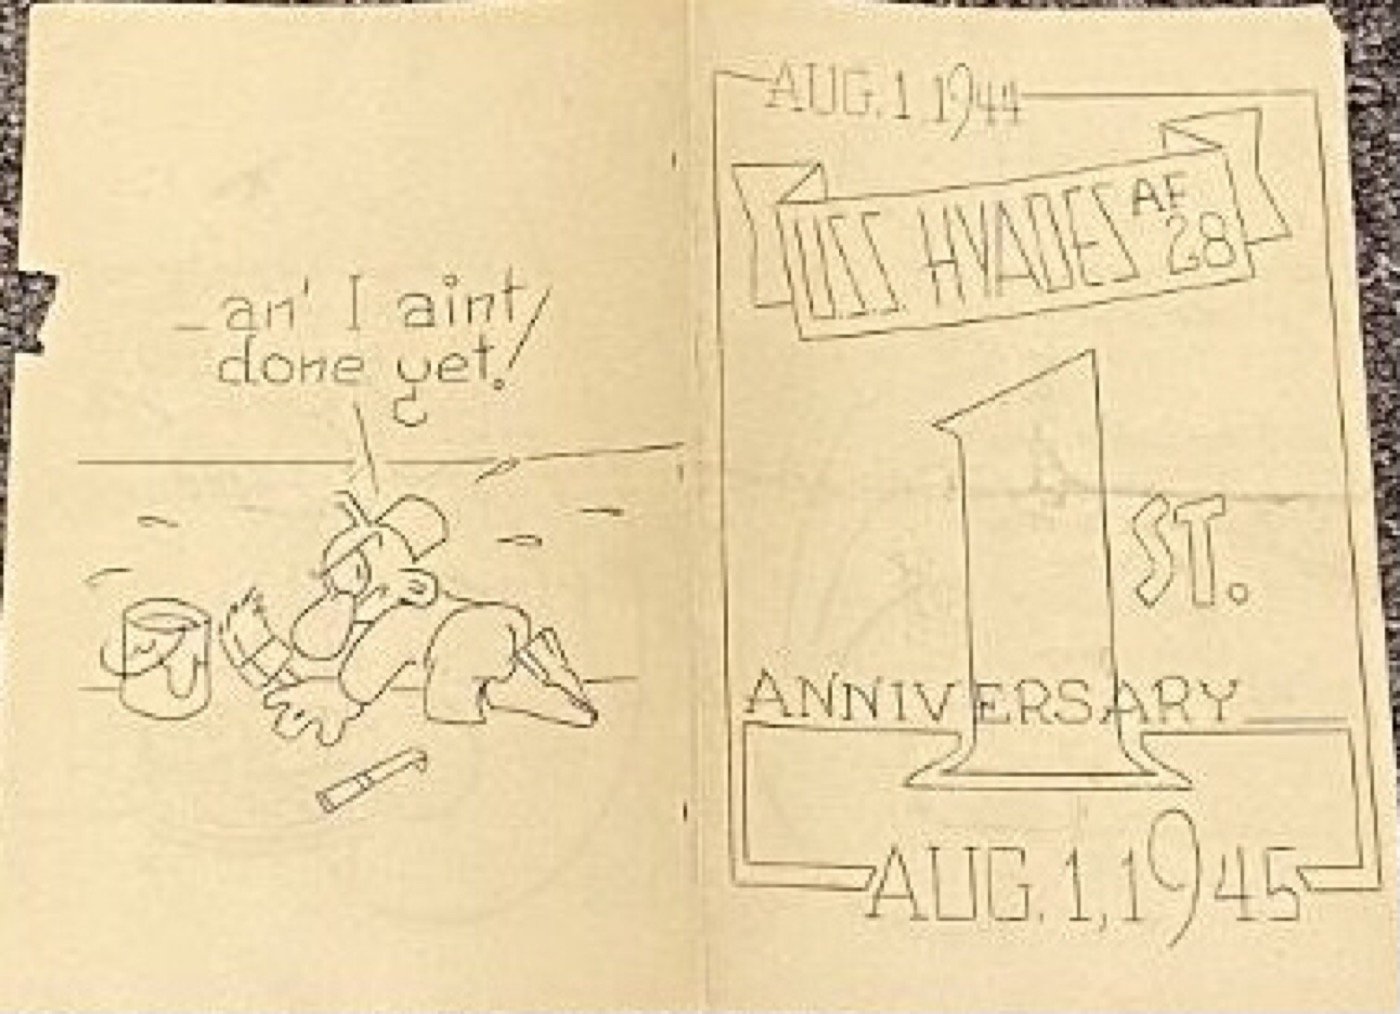 _ an' I aint
done yet!
AUG. 1 1944
USS HYADES AF
28
1 ST.
ANNIVERSARY
AUG. 1, 1945